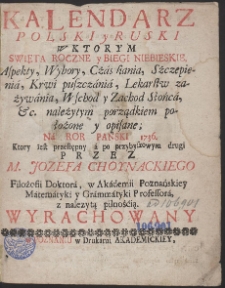 KALENDARZ
POLSKI y RUSKI
W KTORYM
SWIĘTA ROCZNE y BIEGI NIEBIESKIE,
Aspekty, Wybory, Czás siania, Szczepie-
nia, Krwi pusczánia, Lekarstw za-
żywánia, Wschod y Zachod Słońca,
&c. należytym porządkiem po-
łożone y opisáne;
NA ROK PANSKI 1736.
Ktory iest przestępny á po przybyszowym drugi
PRZEZ
M. JOZEFA CHOYNACKIEGO
Filozofii Doktorá, w Akádemii Poznáńskiey
Matemátyki y Grámmátyki Professorá,
z należytą pilnością.
WYRACHOWANY
w Drukarni AKADEMICKIEY,